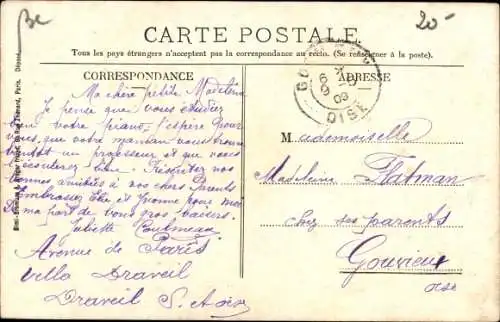 Be
20-
CARTE POSTALE.
Tous les pays étrangers n'acceptent pas la correspondance au recto. (Se renseigner à la poste).
CORRESPONDANCE
ADRESSE
OISE
Ma chère petite Madeleine
Je pense que vous étudiez
bien votre piano, j'espère pour
vous, que votre maman vous trouve
bientôt un professeur et que vous
l'écouterez bien. Transmettez nos
bonnes amitiés à vos chers Parents
Embrassez et Yvonne pour moi
De ma part de bons gros baisers.
Juliette
Avenue de Paris
Villa Draveil
Draveil S. et Oise
Mademoiselle
Madeleine Flatman
Chez ses parents
Gouvieux
Oise